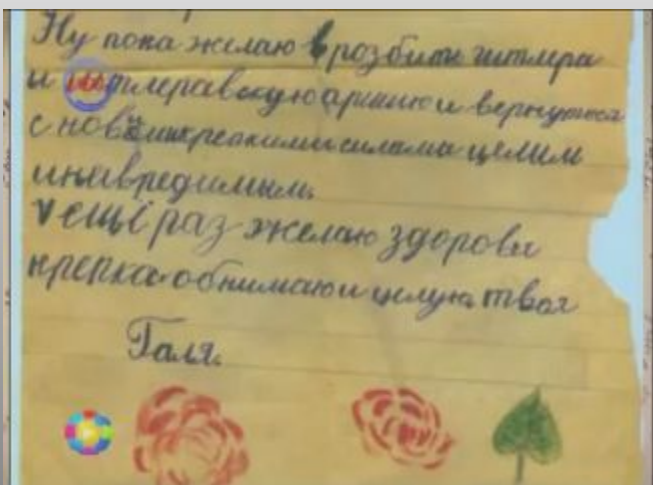 Ну пока желаю врозбити гитлера
и гитлеравскую армию и вернутся
с новыми крепкими силами целим
и невредимым.
Vещё раз желаю здоровя
крепка обнимаю и целую твоя
Галя.